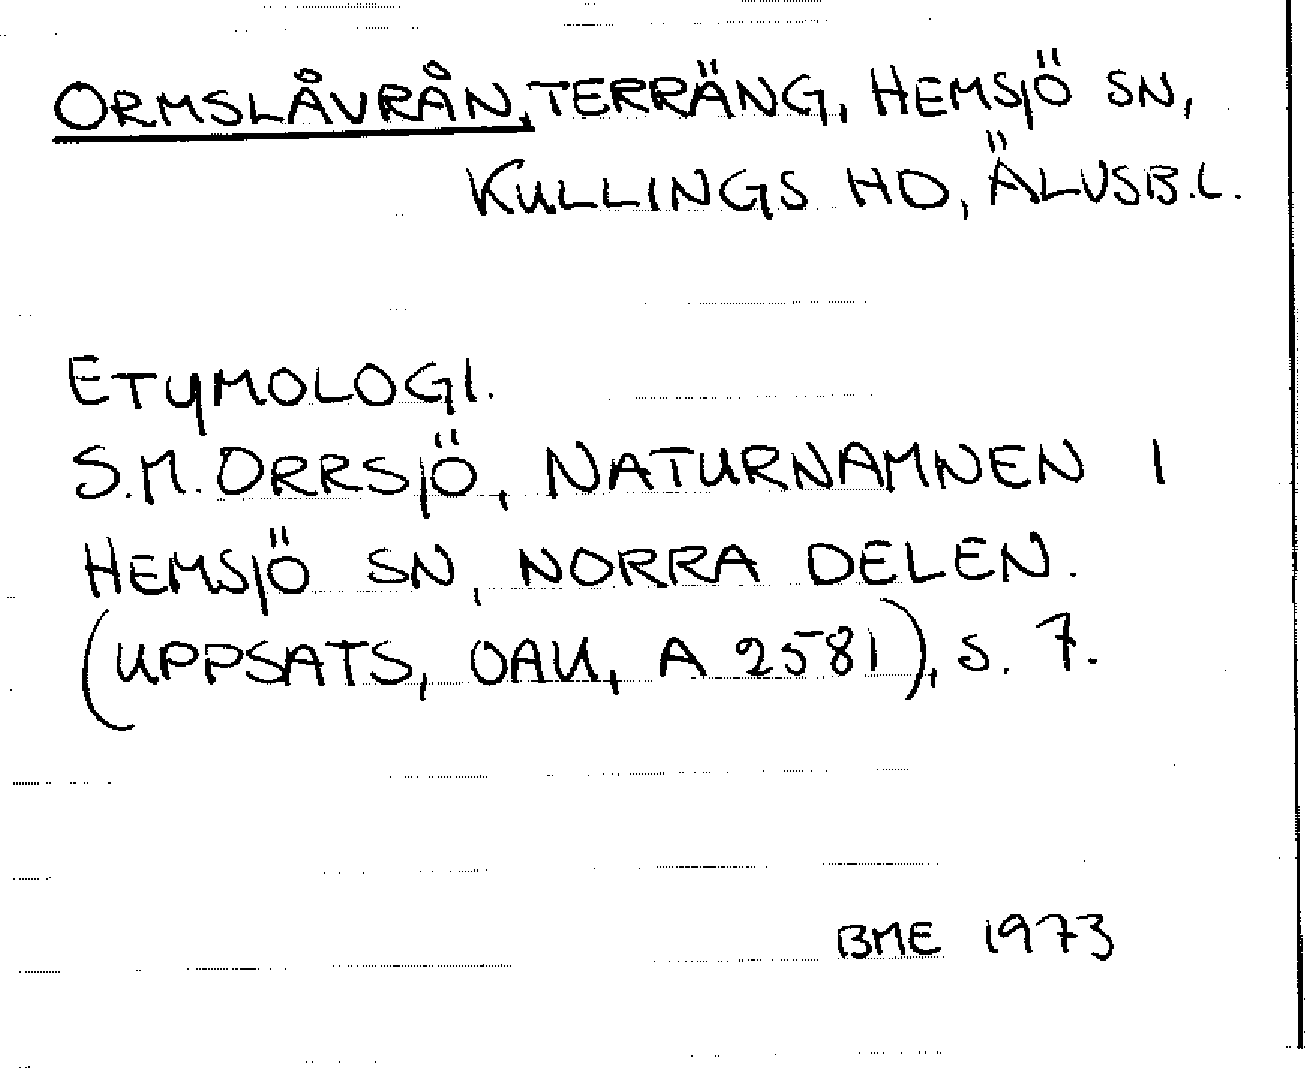 ORMSLÅVRÅN, TERRÄNG, HEMSJÖ SN,
KULLINGS HD, ÄLVSB.L.
ETYMOLOGI.
S.M. ORRSJÖ, NATURNAMNEN I
HEMSJÖ SN, NORRA DELEN.
(UPPSATS, OAU, A 2581), S. 7.
BME 1973